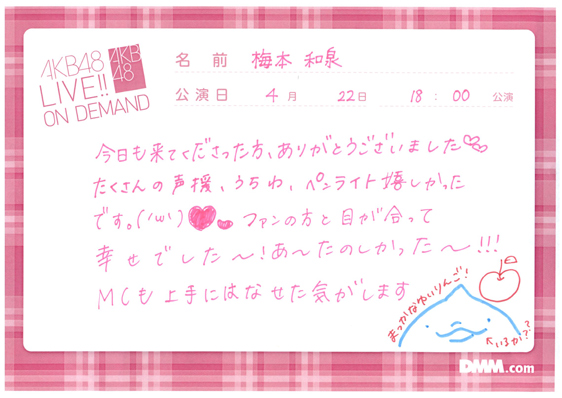 AKB48
LIVE!!
ON DEMAND
AKB
48
名前 梅本 和泉
公演日 4月 22日 18:00 公演
今日も来てくださった方、ありがとうございました
たくさんの声援、うちわ、ペンライト嬉しかった
です。('ω') ファンの方と目が合って
幸せでした〜!あ〜たのしかった〜!!!
MCも上手にはなせた気がします
まっかなゆいりんご!
↖いるか??
DMM.com